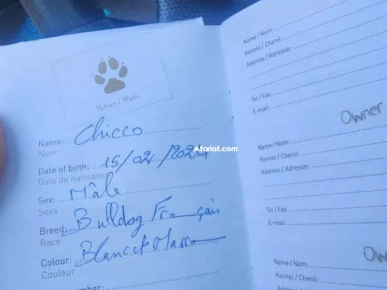 Picture / Photo
Name: Chicco
Nom:
Date of birth: 15/02/2024
Date de naissance
Sex: Mâle
Sexe
Breed: Bulldog Français
Race
Colour: Blanc et
Couleur
number:
Name / Nom:
Kennel / Chenil:
Address / Adresse:
Tel / Fax:
E-mail:
Owner
Name / Nom:
Kennel / Chenil:
Address / Adresse:
Tel / Fax:
E-mail:
Owner
Name / Nom:
Kennel / Chenil:
Address / Adresse:
Afariat.com